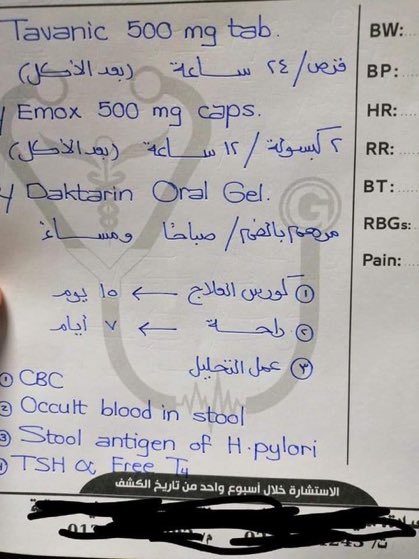 Tavanic 500 mg tab.
قرص / ٢٤ ساعة (بعد الأكل)
Emox 500 mg caps.
٢ كبسولة / ١٢ ساعة (بعد الأكل)
Daktarin Oral Gel.
مرهم بالفم / صباحًا ومساءً
① كورس العلاج ← ١٥ يوم
② راحة ← ٧ أيام
③ عمل التحليل
① CBC
② Occult blood in stool
③ Stool antigen of H. pylori
④ TSH & Free T4
BW:
BP:
HR:
RR:
BT:
RBGs:
Pain:
الاستشارة خلال أسبوع واحد من تاريخ الكشف